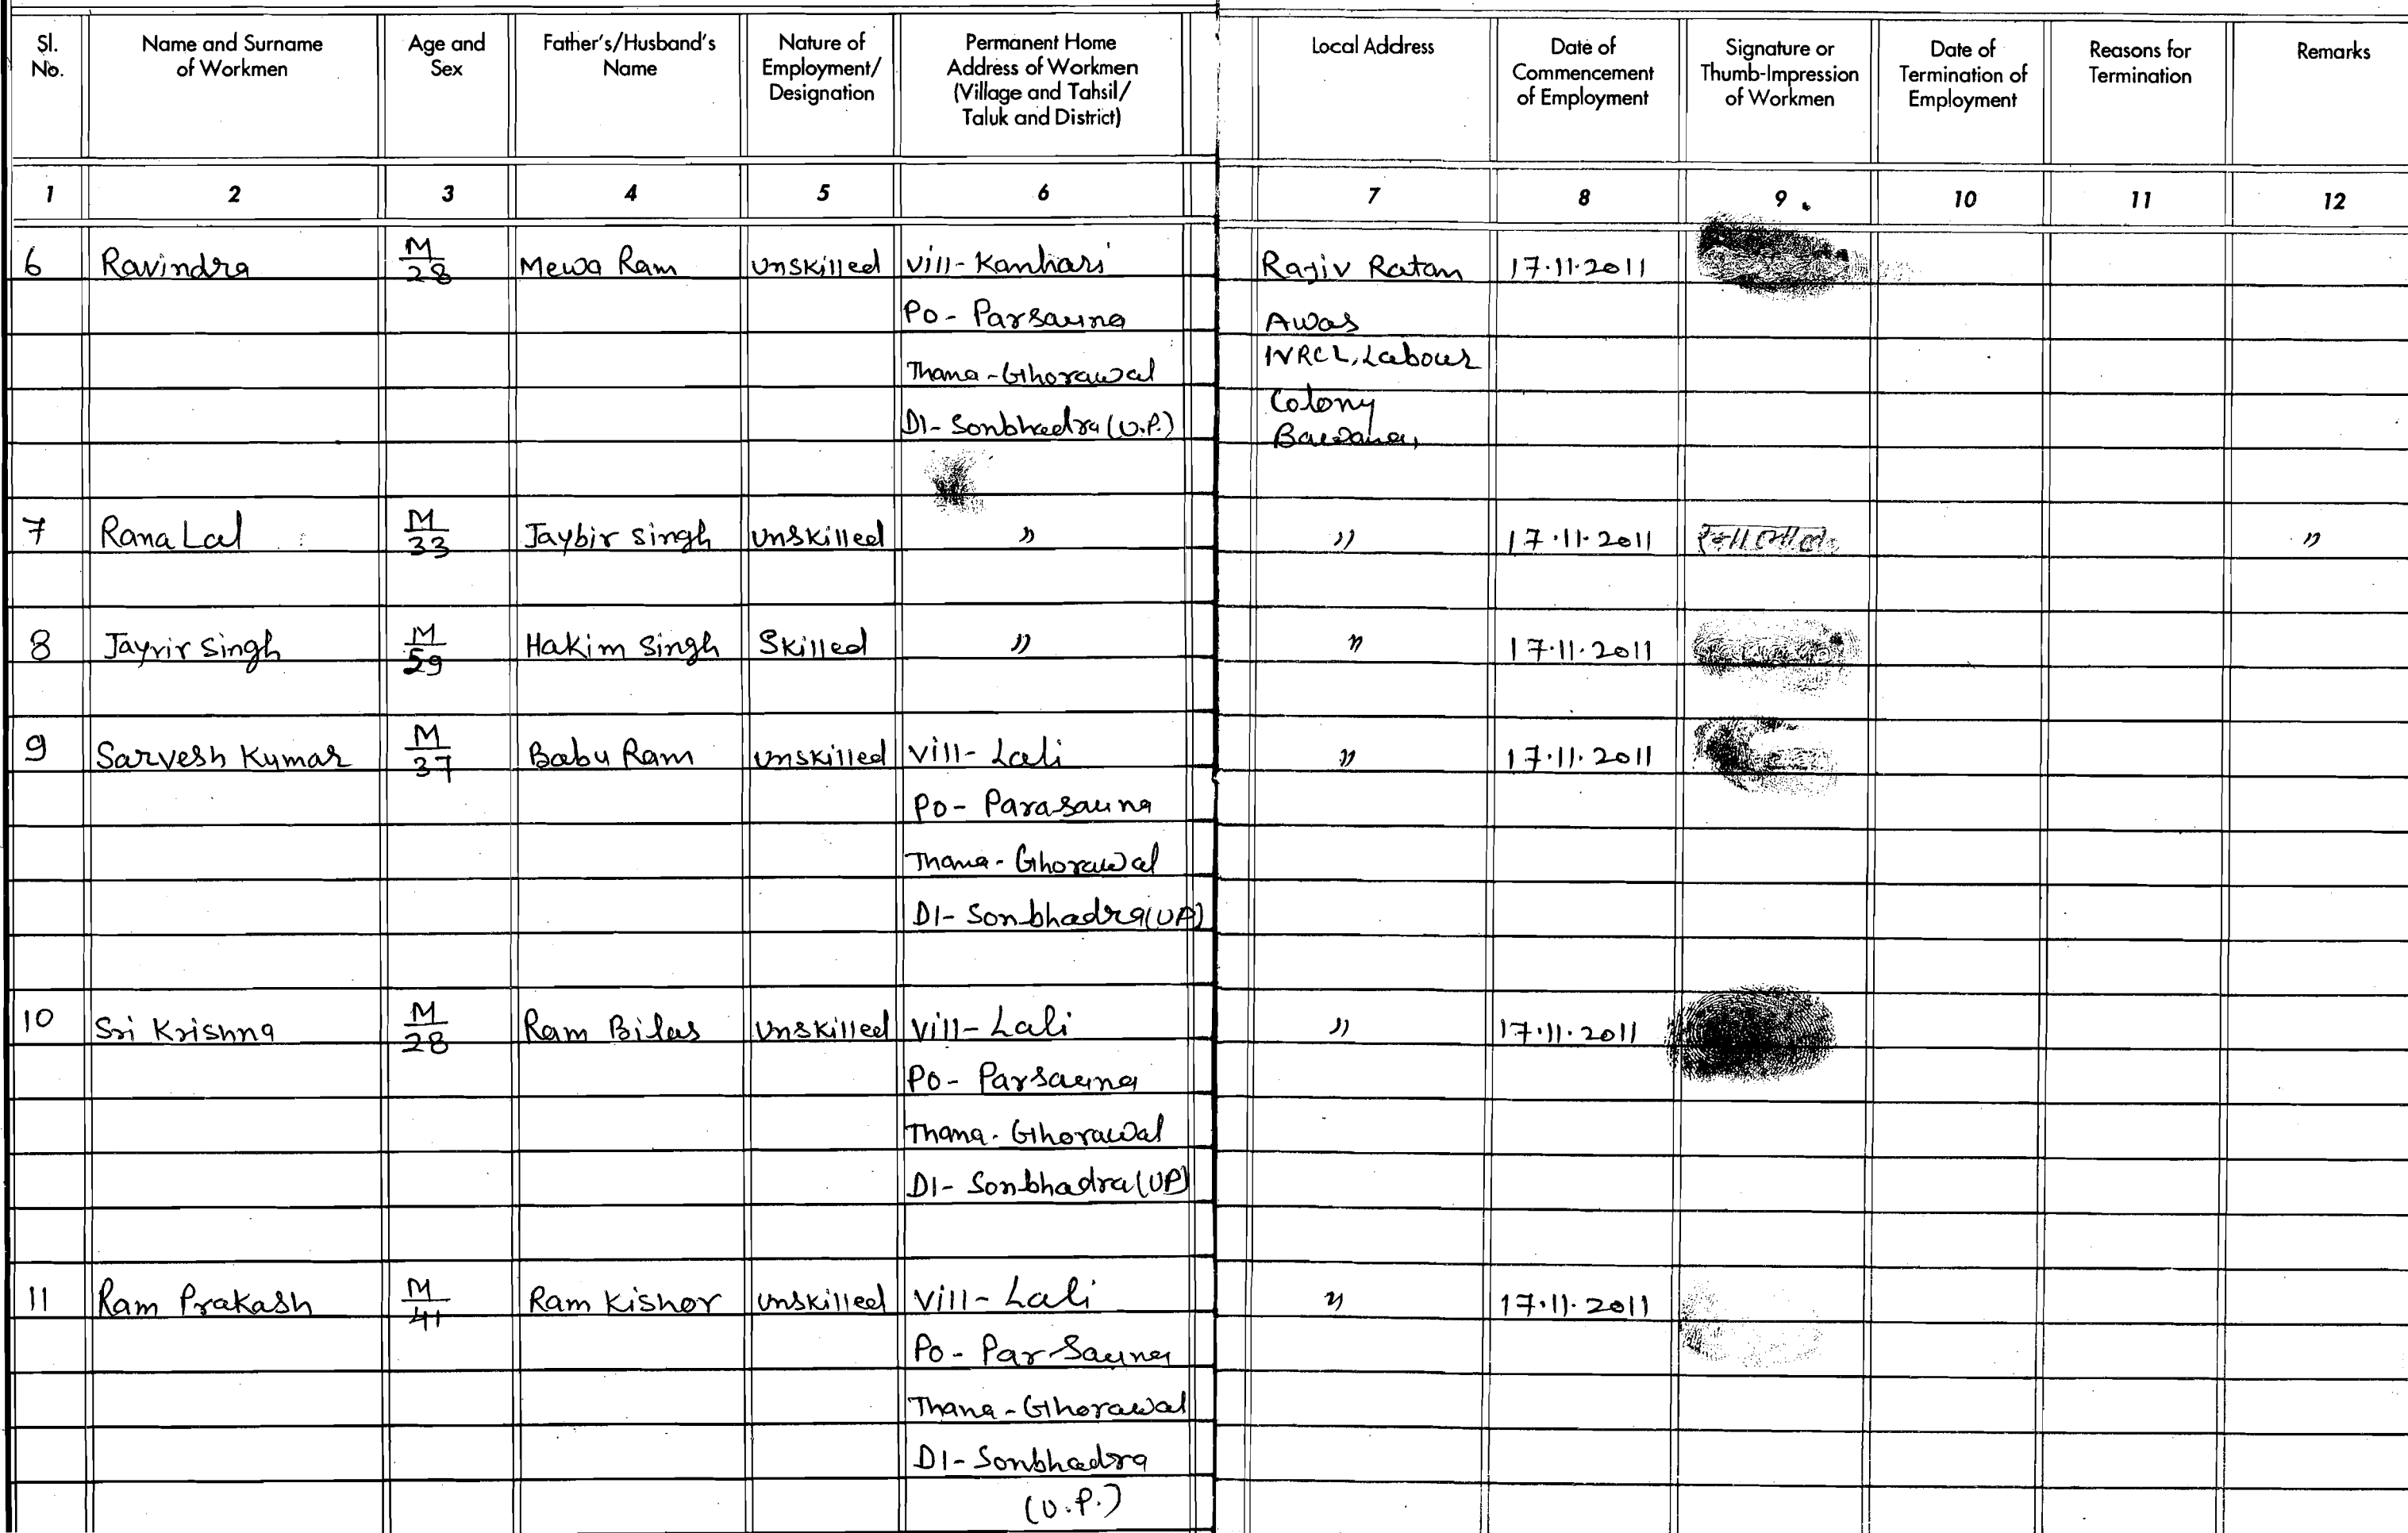 Sl. No.
Name and Surname of Workmen
Age and Sex
Father's/Husband's Name
Nature of Employment/ Designation
Permanent Home Address of Workmen (Village and Tahsil/ Taluk and District)
Local Address
Date of Commencement of Employment
Signature or Thumb-Impression of Workmen
Date of Termination of Employment
Reasons for Termination
Remarks
1 2 3 4 5 6 7 8 9 10 11 12
6 Ravindra M/28 Mewa Ram Unskilled Vill-Kanhari Rajiv Ratan 17.11.2011
Po- Parsauna Awas
Thana-Ghorawal IVRCL, Labour
DI- Sonbhadra (U.P.) Colony
Bawana,
7 Rana Lal M/33 Jaybir Singh Unskilled " " 17.11.2011 "
8 Jayvir Singh M/59 Hakim Singh Skilled " " 17.11.2011
9 Sarvesh Kumar M/37 Babu Ram Unskilled Vill- Lali " 17.11.2011
Po- Parasauna
Thana- Ghorawal
DI- Sonbhadra(UP)
10 Sri Krishna M/28 Ram Bilas Unskilled Vill- Lali " 17.11.2011
Po- Parsauna
Thana- Ghorawal
DI- Sonbhadra(UP)
11 Ram Prakash M/41 Ram Kishor Unskilled Vill- Lali " 17.11.2011
Po- Parsauna
Thana- Ghorawal
DI- Sonbhadra
(U.P.)